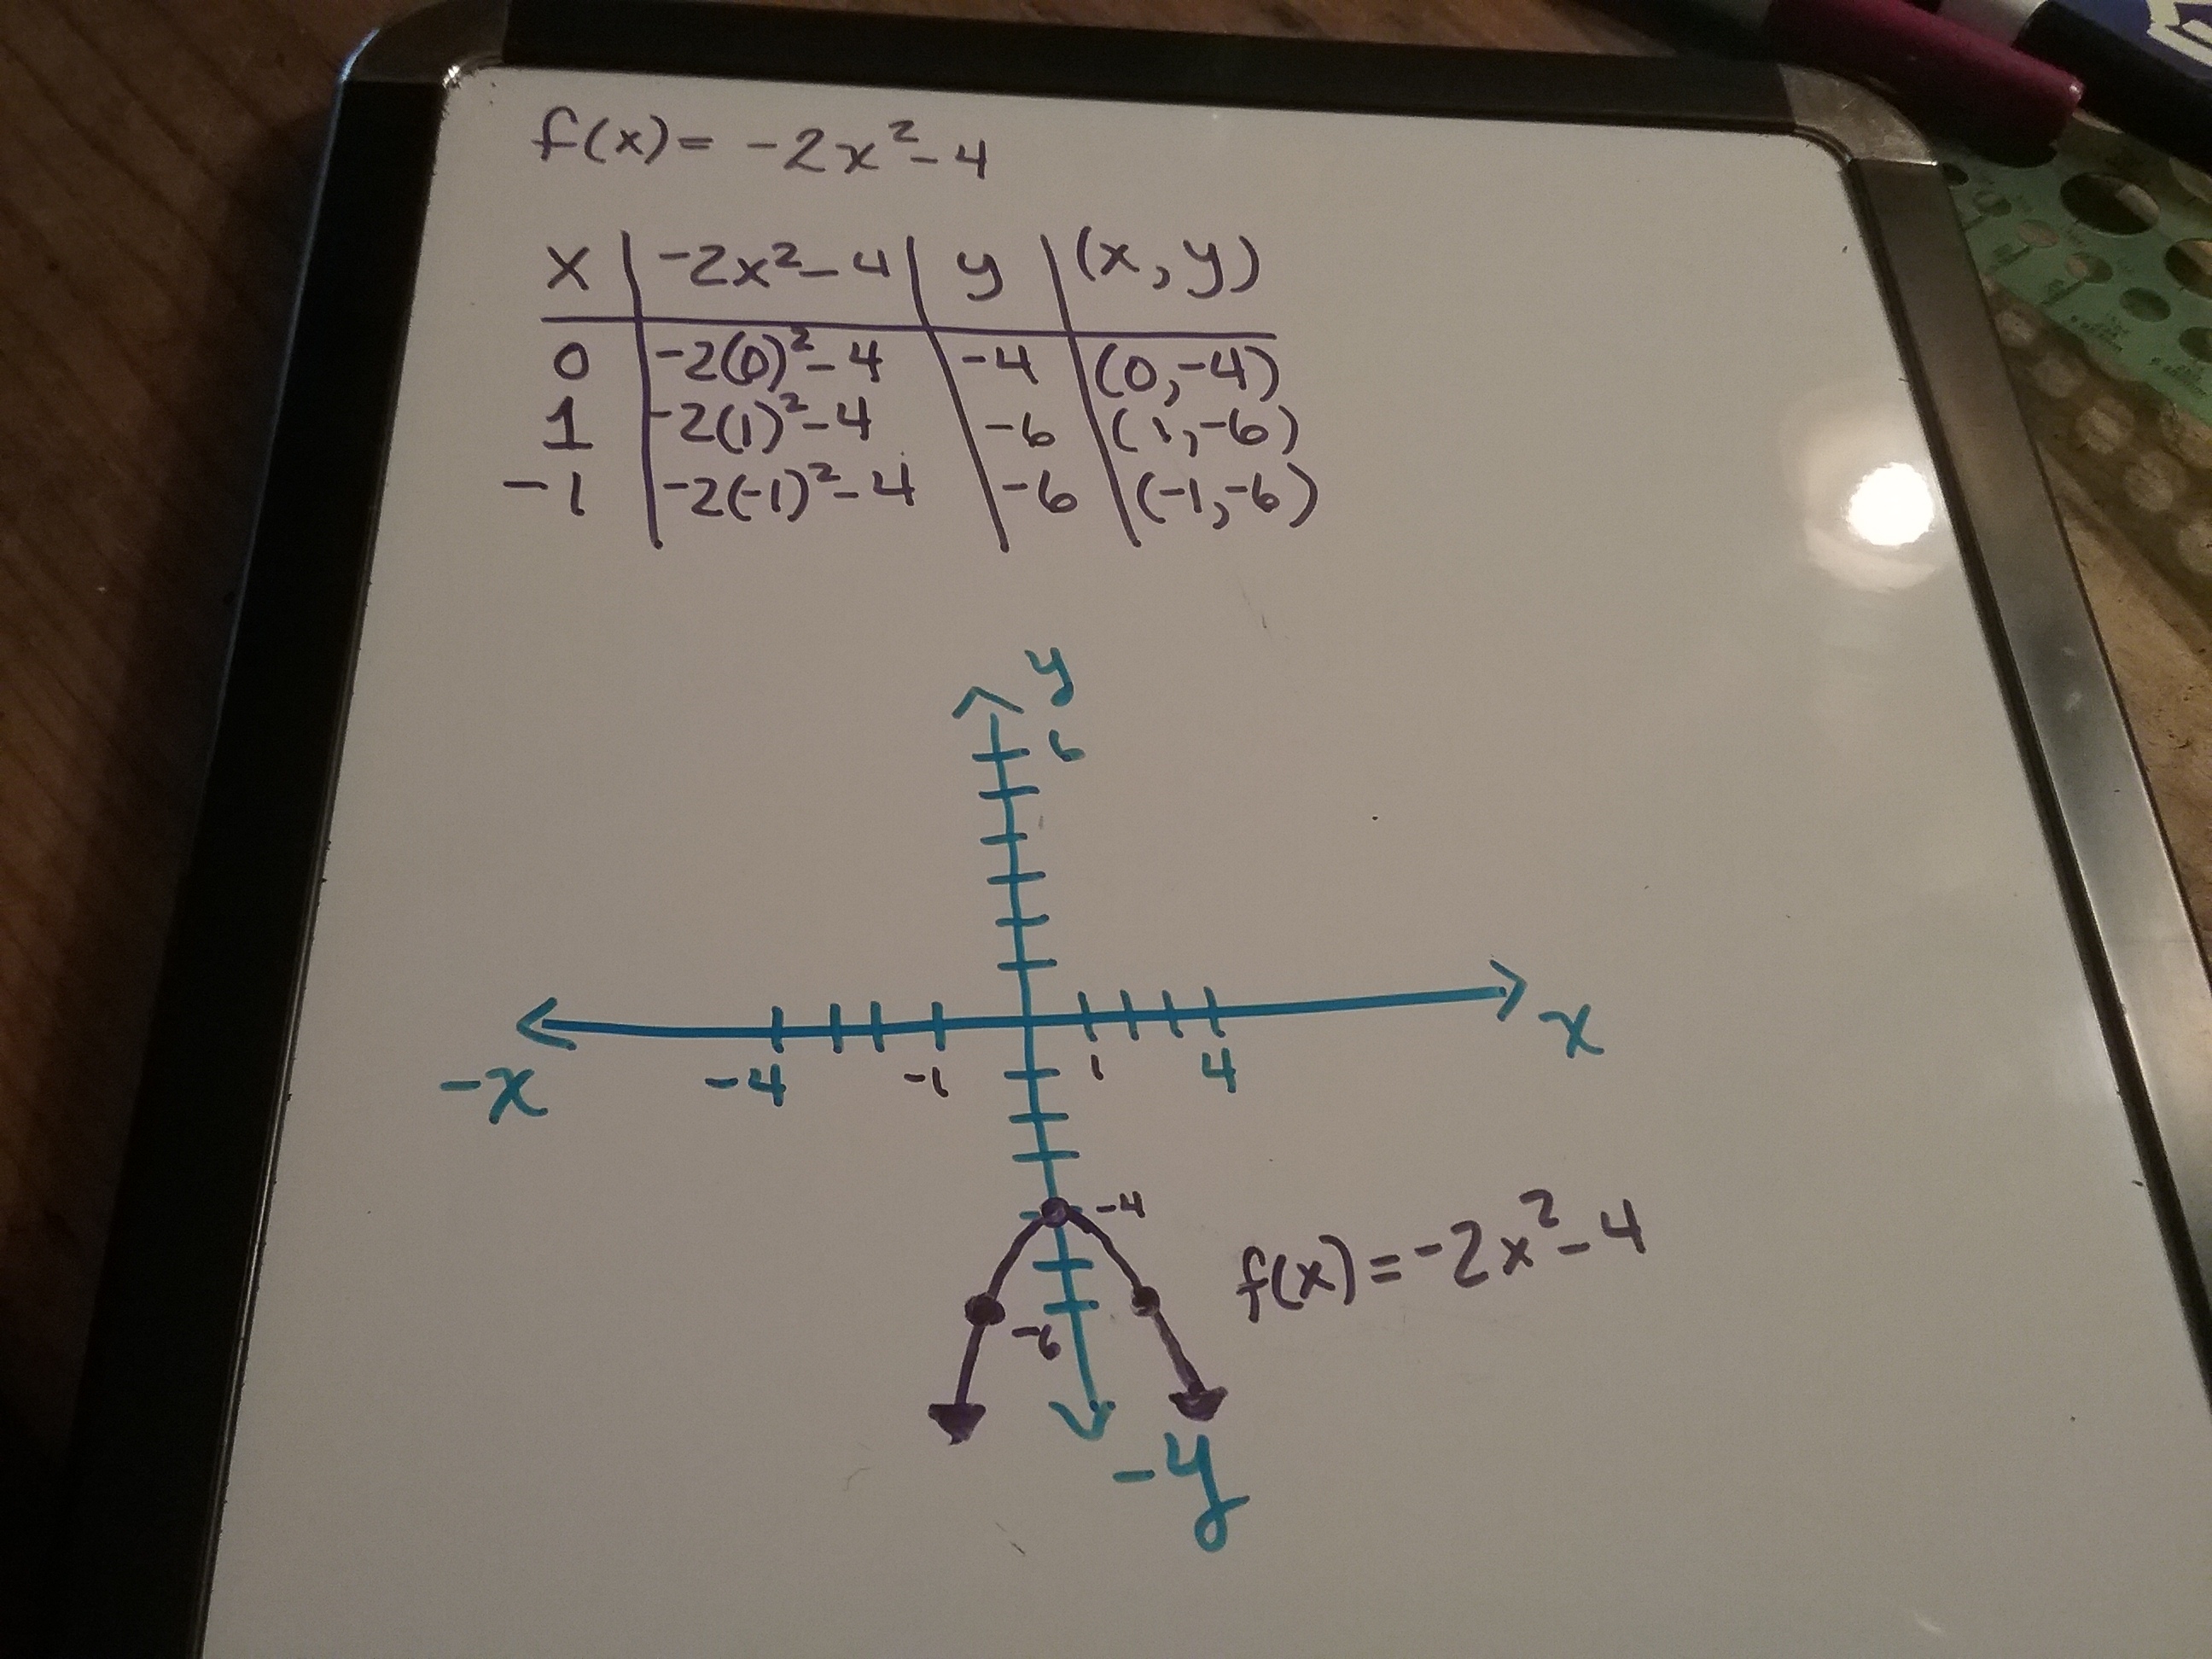 f(x)= -2x²-4
x | -2x²-4 | y | (x,y)
0 | -2(0)²-4 | -4 | (0,-4)
1 | -2(1)²-4 | -6 | (1,-6)
-1 | -2(-1)²-4 | -6 | (-1,-6)
y
6
x
-x -4 -1 1 4
-4
f(x)=-2x²-4
-6
-y